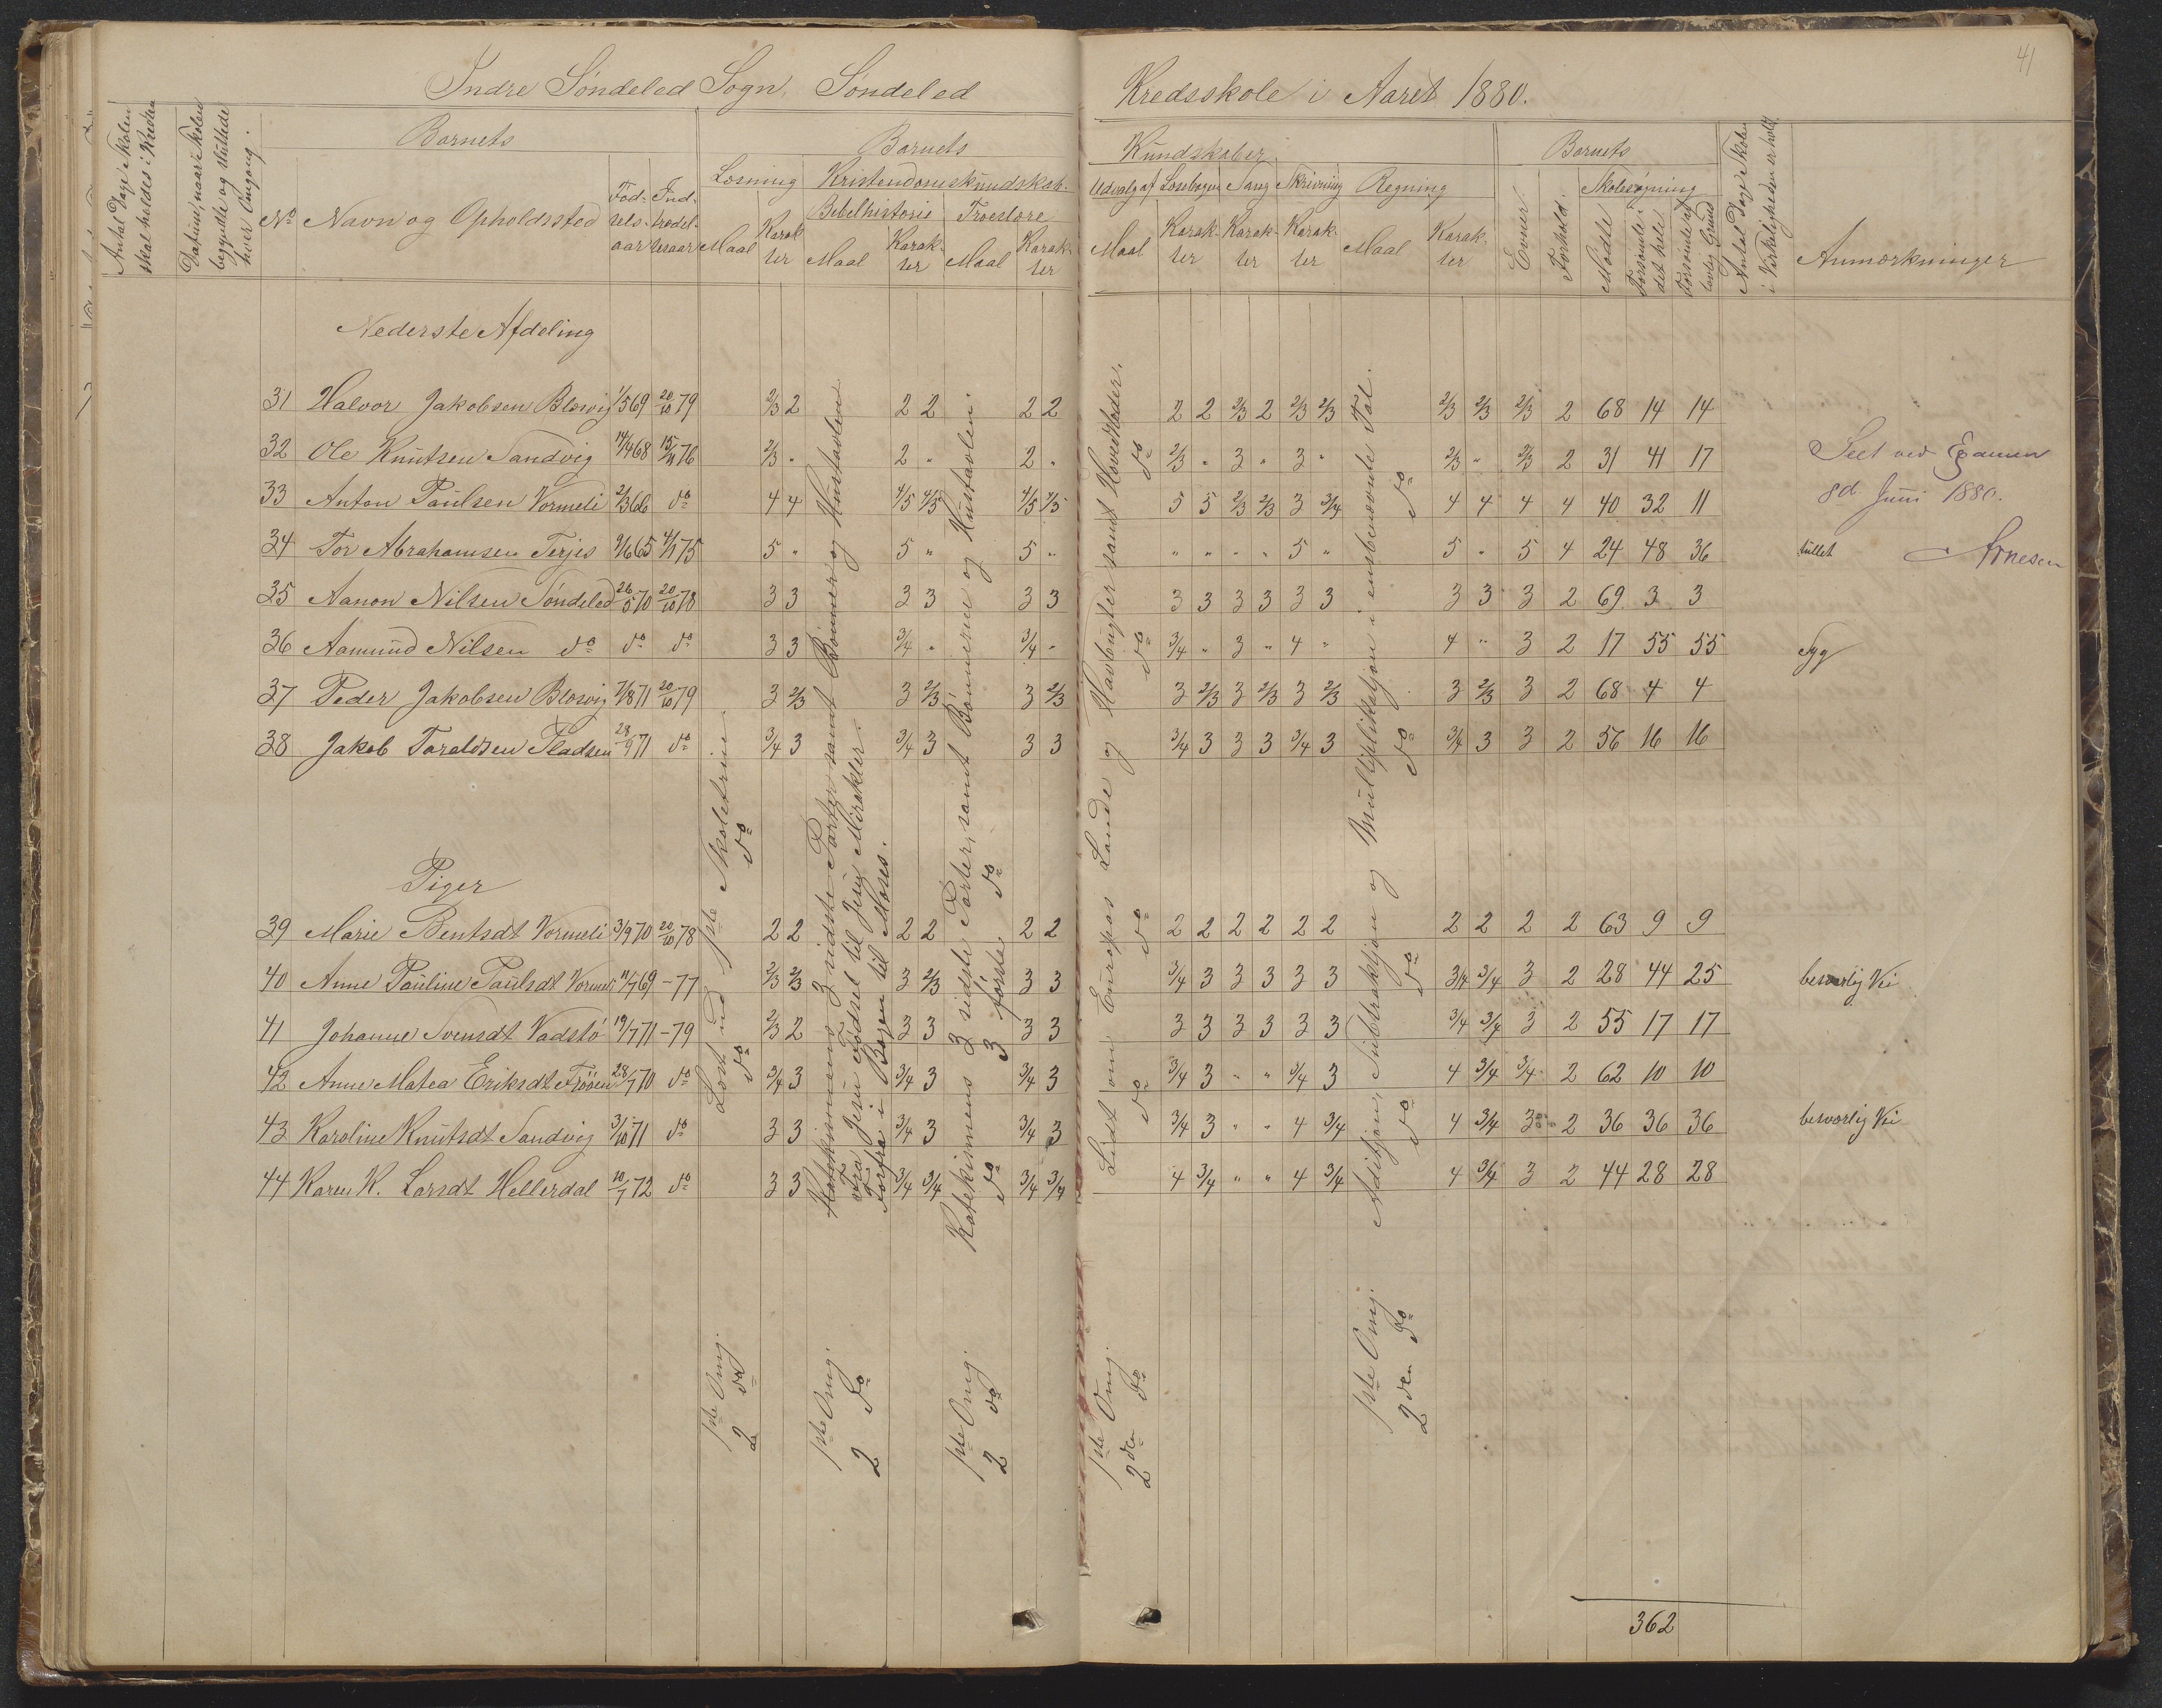 41
Indre Søndeled Sogn, Søndeled Kredsskole i Aaret 1880.
Antal Dage Skolen skal holdes i Kredsen
Datum, naar Skolen begyndte og sluttede hver Omgang.
Barnets
Barnets Kundskaber
Barnets
No Navn og Opholdssted Fødselsaar Indtrædelsesaar
Læsning Kristendomskundskab.
Bibelhistorie Troeslære
Maal Karakter Maal Karakter Maal Karakter
Udvalg af Læsebogen Sang Skrivning Regning
Maal Karakter Karakter Karakter Maal Karakter
Evner. Forhold. Skolesøgning
Mødte Forsømte i det hele Forsømte af lovlig Grund
Antal Dage Skolen i Virkeligheden er holdt.
Anmærkninger
Nederste Afdeling
31 Halvor Jakobsen Blesvig 1/5 69 20/10 79 2/3 2 2 2 2 2 2 2 2/3 2 2/3 2/3 2/3 2/3 2/3 2 68 14 14
32 Ole Knutsen Sandvig 14/4 68 15/11 76 2/3 " 2 " 2 " 2/3 " 3 " 3 " 2/3 " 2/3 2 31 41 17
33 Anton Paulsen Vormeli 2/3 66 do 4 4 4/5 4/5 4/5 4/5 5 5 2/3 2/3 3 3/4 4 4 4 4 40 32 11
34 Tor Abrahamsen Terjes 9/6 65 4/1 75 5 " 5 " 5 " " " " " 5 " 5 " 5 4 24 48 36
35 Aanon Nilsen Søndeled 26/5 70 20/10 78 3 3 3 3 3 3 3 3 3 3 3 3 3 3 3 2 69 3 3
36 Aamund Nilsen do do do 3 3 3/4 " 3/4 " 3/4 " 3 " 4 " 4 " 3 2 17 55 55 Syg
37 Peder Jakobsen Blesvig 7/8 71 20/10 79 3 2/3 3 2/3 3 2/3 3 2/3 3 2/3 3 2/3 3 2/3 3 2 68 4 4
38 Jakob Taraldsen Pladsen 28/9 71 do 3/4 3 3/4 3 3 3 3/4 3 3 3 3/4 3 3/4 3 3 2 56 16 16
Seet ved Examen
8d Juni 1880.
Arnesen
Piger
39 Marie Bentsdt Vormeli 3/9 70 20/10 78 2 2 2 2 2 2 2 2 2 2 2 2 2 2 2 2 63 9 9
40 Anne Pauline Paulsdt Vormeli 11/7 69 - 77 2/3 2/3 3 2/3 3 3 3/4 3 3 3 3 3 3/4 3/4 3 2 28 44 25 besværlig Vei
41 Johanne Svensdt Vadstø 19/7 71 - 79 2/3 2 3 3 3 3 3 3 3 3 3 3 3/4 3/4 3 2 55 17 17
42 Anne Matea Eriksdt 28/7 70 do 3/4 3 3/4 3 3/4 3 3/4 3 " " 3/4 3 4 3/4 3/4 2 62 10 10
43 Karoline Knutsdt Sandvig 3/10 71 do 3 3 3/4 3 3/4 3 3/4 3 " " 4 3/4 4 3/4 3 2 36 36 36 besværlig Vei
44 Karen K. Larsdt Hellerdal 10/7 72 do 3 3 3/4 3/4 3/4 3/4 4 3/4 " " 4 3/4 4 3/4 3 2 44 28 28
1ste Omg. Læst ud 1ste Skoletrin.
2de do do do
1ste Omg. Katekismens 3 sidste Parter samt Bønner og Hustavlen
Fra Jesu Fødsel til Jesu Mirakler.
2 do Forfra i Bogen til Moses.
1ste Omg. Katekismens 3 sidste Parter, samt Bønnerne og Hustavlen.
2 do do 3 første do
1ste Omg. Lidt om Europas Lande og Havbugter samt Hovedstæder.
2den do do do do do
1ste Omg. Aditsjon, Subtraktsjon og Multiplikatsjon i ensbenævnte Tal.
2den do do do do do
362